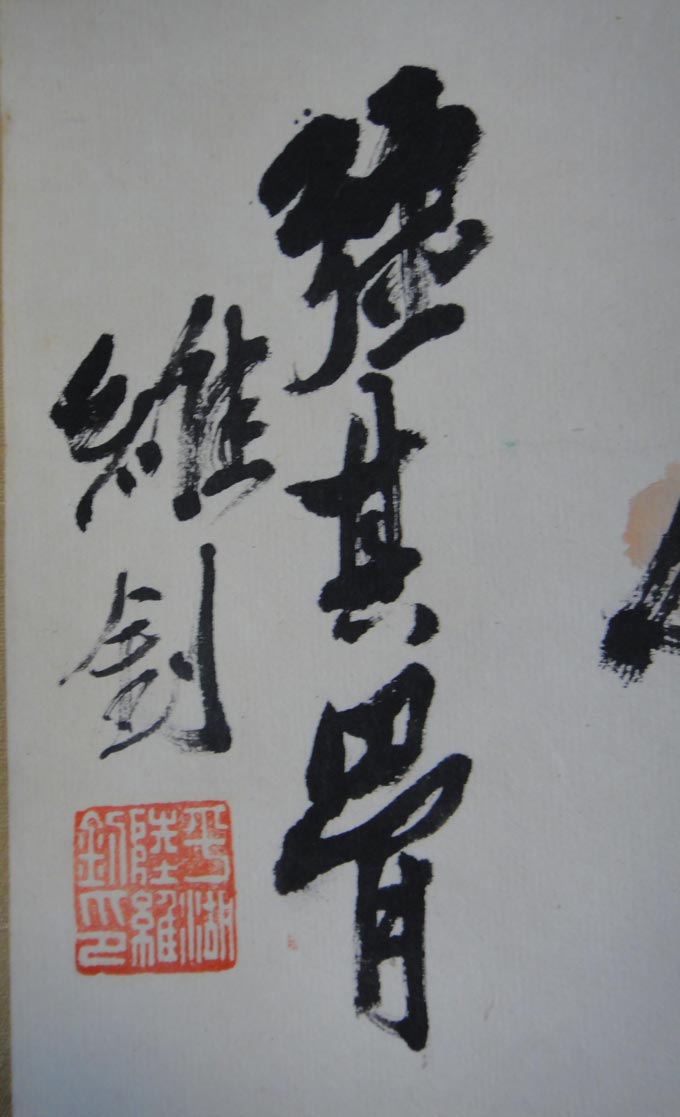 強其骨
維釗
平湖
陸維
釗印